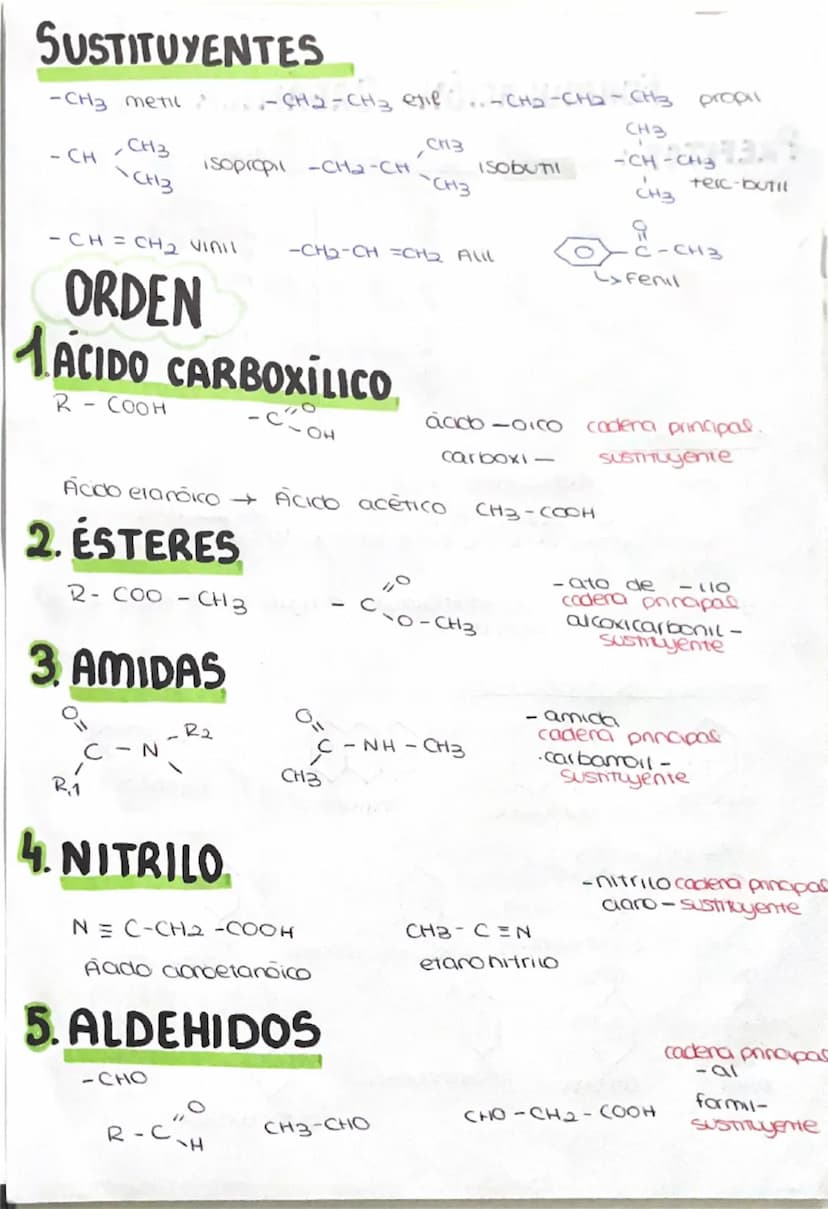 SUSTITUYENTES
-CH3 metil -CH2-CH3 etil -CH2-CH2-CH3 propil
-CH CH3 CH3 isopropil -CH2-CH CH3 CH3 isobutil CH3 -CH-CH3 CH3 terc-butil
-CH=CH2 vinil -CH2-CH=CH2 Alil O C-CH3
↳Fenil
ORDEN
1. ÁCIDO CARBOXÍLICO
R-COOH -C O OH ácido -oico cadena principal.
carboxi- sustituyente
Ácido etanóico → Ácido acético CH3-COOH
2. ÉSTERES
R-COO-CH3 -C O O-CH3 -ato de -ilo
cadena principal
alcoxicarbonil-
sustituyente
3. AMIDAS
O C-N R2 R,1 O C-NH-CH3 CH3 -amida
cadena principal
.carbamoil-
sustituyente
4. NITRILO
-nitrilo cadena principal
ciano- sustituyente
N≡C-CH2-COOH CH3-C≡N
Ácido cianoetanóico etanonitrilo
5. ALDEHIDOS
cadena principal
-al
-CHO
R-C O H CH3-CHO CHO-CH2-COOH formil-
sustituyente